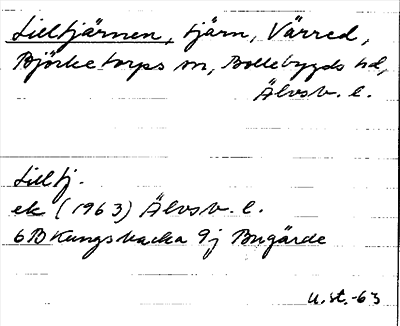 Lilltjärnen, tjärn, Värred,
Björketorps sn, Bollebygds hd,
Älvsb. l.
Lilltj.
ek (1963) Älvsb. l.
6B Kungsbacka 9j Bugärde
u.st.-63